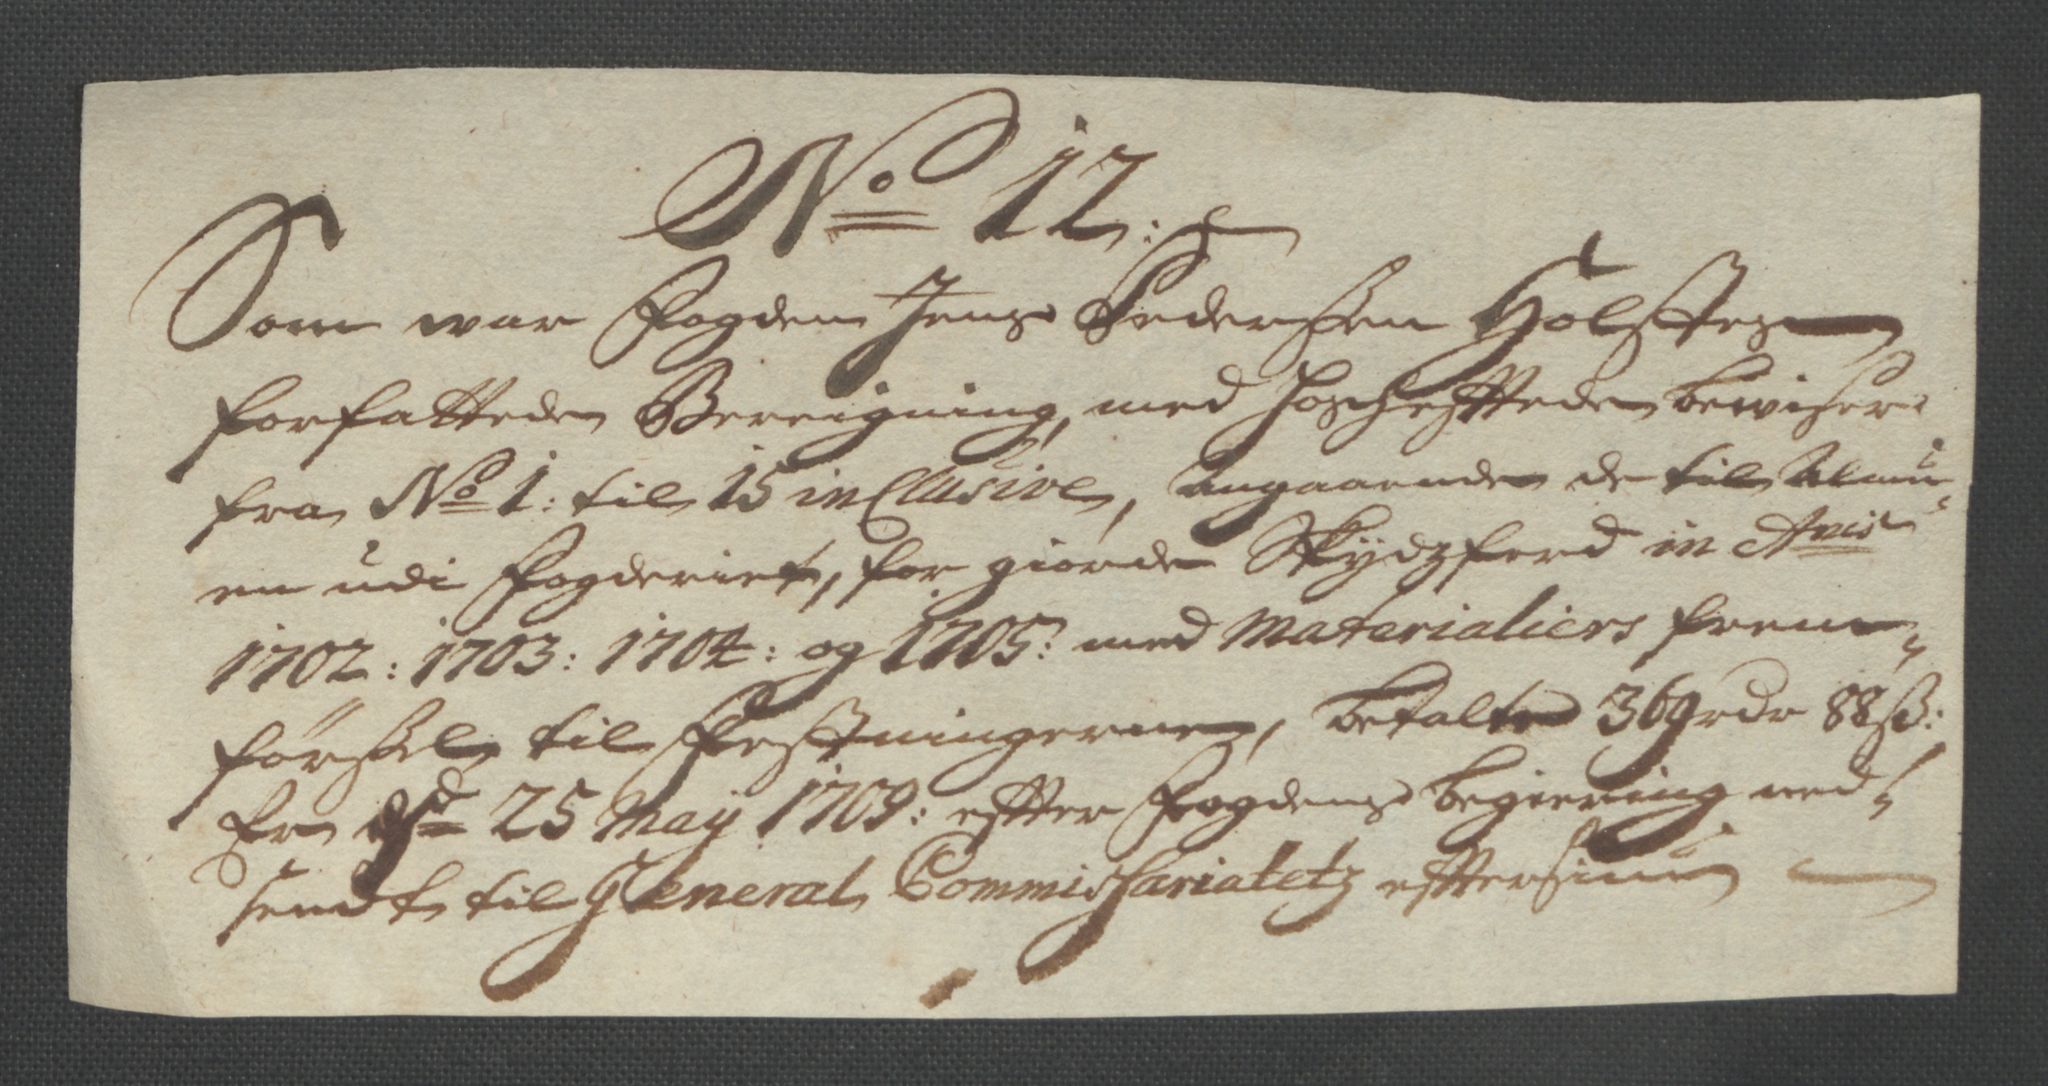 No 12:
Som war Fogden Jens Pedersen Holstes
forfattede Bereigning, med hosheftede bewiser
fra No 1: til 15 inClusive, angaaende de til Almu-
en udi Fogderiet, for giorde Skydzferd in Anis
1702: 1703: 1704: og 1705: med Materialiers frem-
førsel til Festningerne, betalte 369 rdr 88 ß:
Er 25 May 1709: efter Fogdens begiering ned-
sendt til General Commissariatetz eftersiun